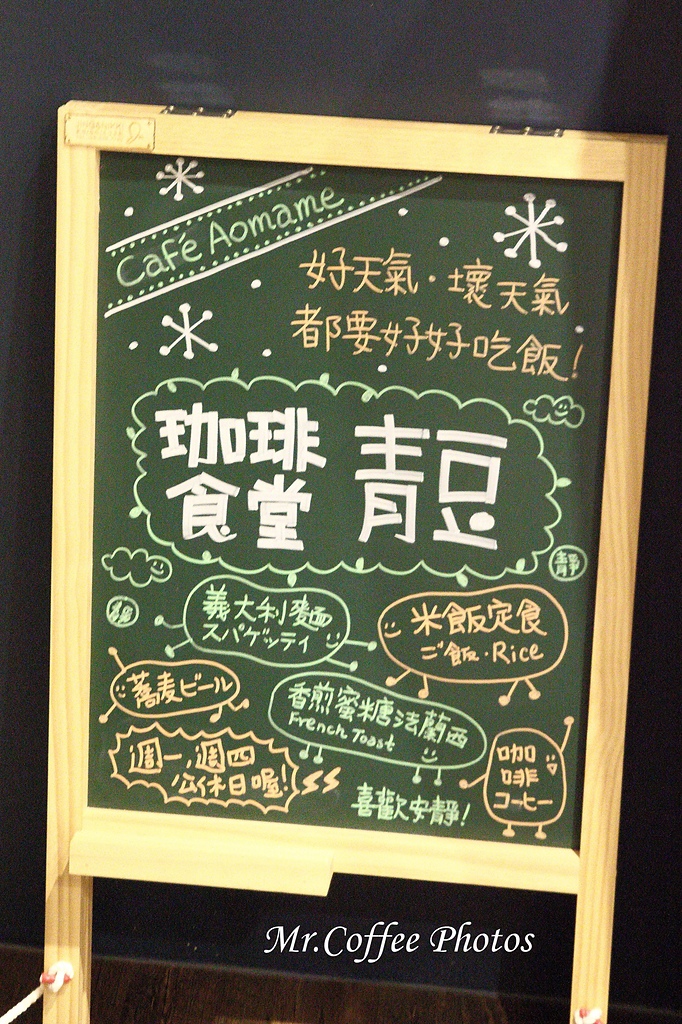 Café Aomame
好天氣·壞天氣
都要好好吃飯!
珈琲
食堂
青豆
靜
義大利麵
スパゲッティ
米飯定食
ご飯·Rice
蕎麦ビール
香煎蜜糖法蘭西
French Toast
週一,週四
公休日喔!
咖
啡
コーヒー
喜歡安靜!
Mr.Coffee Photos